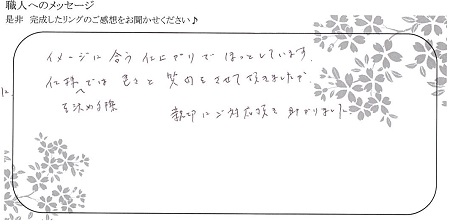 職人へのメッセージ
是非 完成したリングのご感想をお聞かせください♪
イメージに合う仕上がりでほっとしています。
仕様では 色々と 質問をさせて頂きましたが
を決める際
親切にご対応頂き 助かりました。